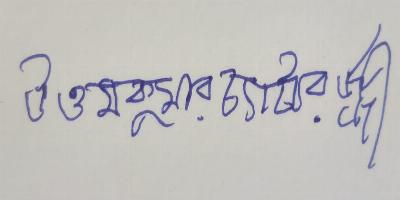 উত্তমকুমার চ্যাটার্জ্জী